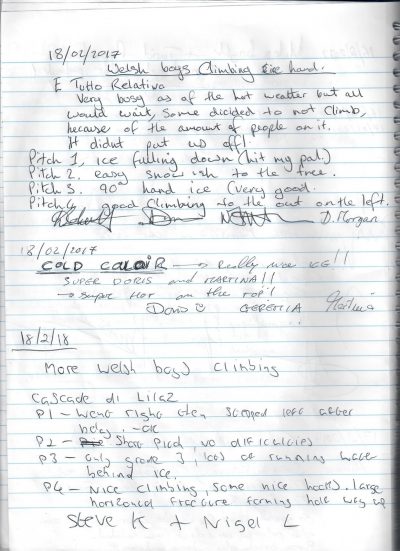 18/02/2017
Welsh boys Climbing hand.
E Tutto Relativo
Very busy as of the hot weatter but all
would wait, Some dicided to not Climb,
because of the amount of people on it.
It didnt put us off!
Pitch 1, ice fulling down (hit my pal.)
Pitch 2. easy snow ish to the tree.
Pitch 3. 90° hand ice (very good.
Pitch 4 good Climbing to the out on the left.
D. Morgan
18/02/2017
COLD COLOIR → Really nice ICE!!
SUPER DORIS and MARTINA!!
→ super HOT on the top!
Doris GEREMIA Martina
18/2/18
More Welsh boys climbing
Cascade di Lilaz
P1 - Went right then stepped left after
P2 - Short Pitch, no difficulties
P3 - only grade 3, lots of running water
behind ice.
P4 - Nice climbing, some nice hooks. large
horizontal fracture forming half way up
Steve K + Nigel L